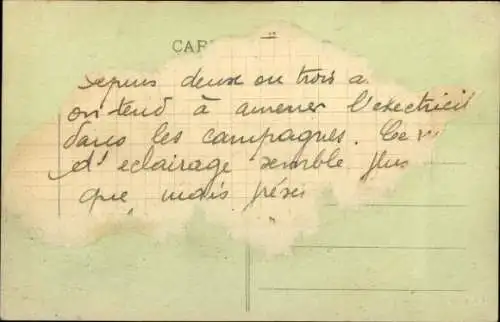 CAR
depuis deux ou trois a
on tend à amener l'exectricit
dans les campagnes. Ce
d'eclairage semble plus
que mais